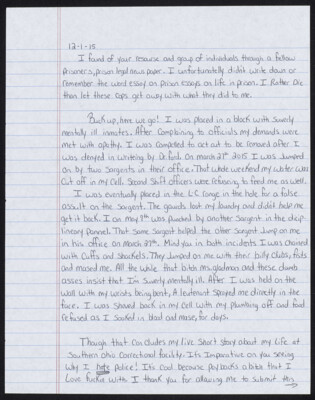 12-1-15
I found of your resourse and group of individuals through a fellow
prisoners, prison legal news paper. I unfortunately didn't write down or
remember the word essay on prison essays on life in prison. I Rather Die
than let these cops get away with what they did to me.
Back up, here we go! I was placed in a block with Severly
mentally ill inmates. After Complaining to officials my demands were
met with apathy. I was Compelled to act out to be removed after I
was denied in writeing by On March 27th 2015 I was Jumped
on by two Sargents in their office. That whole weekend my water was
Cut off in my Cell. Second Shift officers were refuseing to feed me as well.
I was eventually placed in the range in the hole, for a false
assault on the Sargent. The guards lost my laundry and didn't help me
get it back. I on may 8th was punched by another Sargent in the disip-
lineary pannel. That same Sargent helped the other Sargent Jump on me
in his office on March 27th. Mind you in both incidents I was Chained
with Cuffs and Shackels. They Jumped on me with their billy Clubs, fists
and mased me. All the while that bitch ms. gladman and these dumb
asses insist that I'm Severly mentally ill. After I was held on the
wall with my wrists being bent, A leutenant Sprayed me directly in the
face. I was Shoved back in my Cell with my plumbing off and food
refused as I Soaked in blood and mase, for days.
Though that Concludes my live Short story about my life at
Southern Ohio Correctional facility. It's Imparative on you seeing
Why I hate police! It's Cool because paybacks a bitch that I
Love fuckin with. I thank you for allowing me to submit this